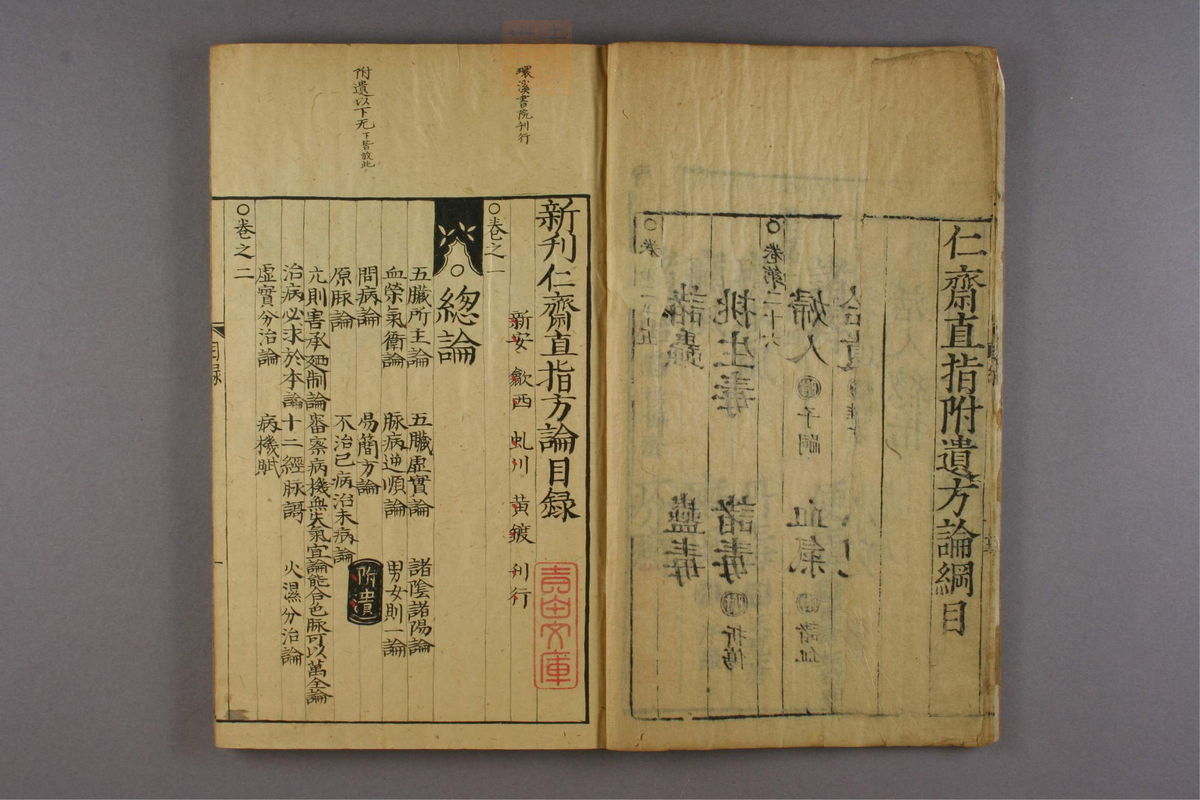 仁齋直指附遺方論綱目
婦人 子嗣 血氣 諸血
卷第二十六
挑生毒 諸毒 折傷
諸蟲 蠱毒
環溪書院刊行
附遺以下无下皆放此
新刊仁齋直指方論目録
新安歙西虬川黄鍍刋行
○卷之一
總論
五臟所主論 五臟虛實論 諸陰諸陽論
血榮氣衛論 脉病逆順論 男女則一論
問病論 易簡方論 附遺
原脉論 不治已病治未病論
亢則害承廼制論 審察病機無失氣宜論 能合色脉可以萬全論
治病必求於本論 十二經脉謌 火濕分治論
虛實分治論 病機賦
○卷之二
目録
吉田文庫